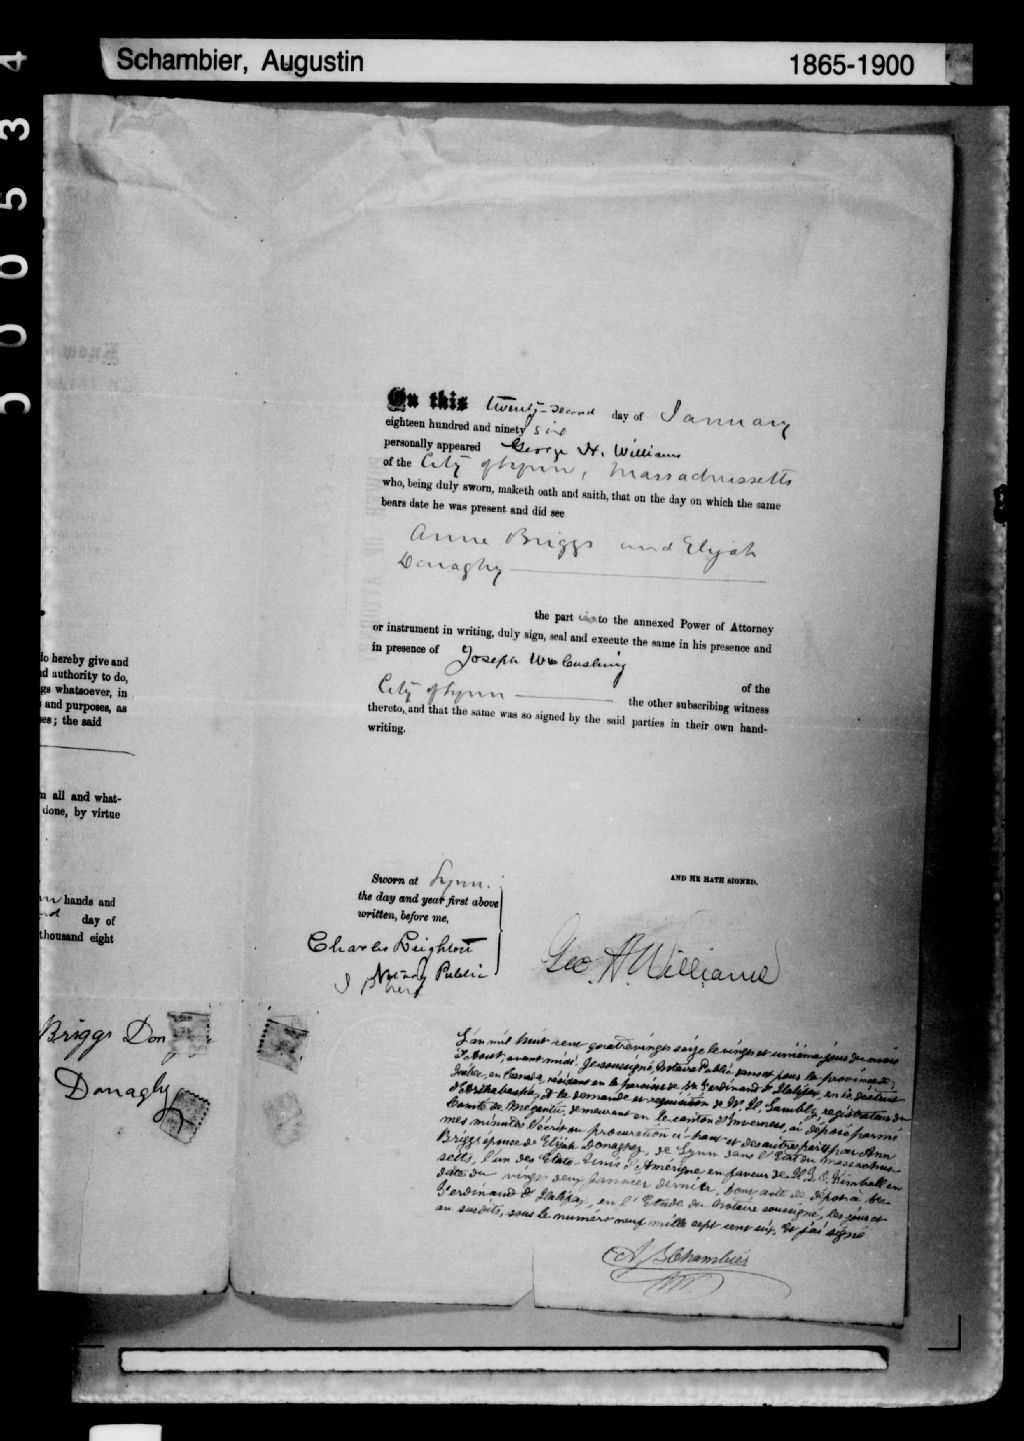 Schambier, Augustin
1865-1900
500534
do hereby give and
and authority to do,
gs whatsoever, in
and purposes, as
es; the said
n all and what-
done, by virtue
hands and
day of
thousand eight
Briggs Don
Donaghy
On this twenty-second day of January
eighteen hundred and ninety six
personally appeared George H. Williams
of the City of Lynn, Massachussetts
who, being duly sworn, maketh oath and saith, that on the day on which the same
bears date he was present and did see
Anne Briggs and Elijah
Donaghy
the part ies to the annexed Power of Attorney
or instrument in writing, duly sign, seal and execute the same in his presence and
in presence of Joseph Wm Cushing
of the
City of Lynn the other subscribing witness
thereto, and that the same was so signed by the said parties in their own hand-
writing.
Sworn at Lynn.
the day and year first above
written, before me,
AND HE HATH SIGNED.
Charles Leighton
Notary Public
Geo. H. Williams
L'an mil huit cent quatrevingt seize le vingt et unième jour du mois
d'Aout, avant midi. Je soussigné, Notaire Public pour la province de
Québec, en Canada, résidant en la paroisse de St Ferdinand d'Halifax, en le district
d'Arthabaska, à la demande et requisition de W. H. Lambly, registrateur du
Comté de Mégantic, demeurant en le canton d'Inverness, ai déposé parmi
mes minutes l'écrit ou procuration ci-haut et des autres parts par Ann
Briggs épouse de Elijah Donaghey, de Lynn dans l'Etat du Massachus-
setts, l'un des Etats-Unis d'Amérique en faveur de Kimball en
date du vingt deux Janvier dernier, Dont acte de dépot à St-
Ferdinand d'Halifax, en l'Etude du Notaire soussigné, les jour et
an susdits, sous le numéro neuf mille sept cent six, Et j'ai signé
A. Schambier
N.P.